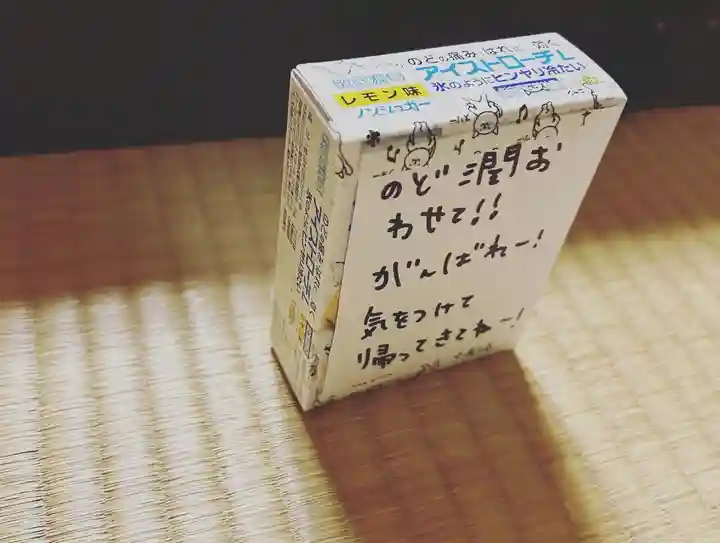 のどの痛み・はれに効く
アイストローチL
氷のようにヒンヤリ冷たい
レモン味
ノンシュガー
のど潤お
わせて!!
が〜ばれー!
気をつけて
帰ってきてねー!
アイストローチL